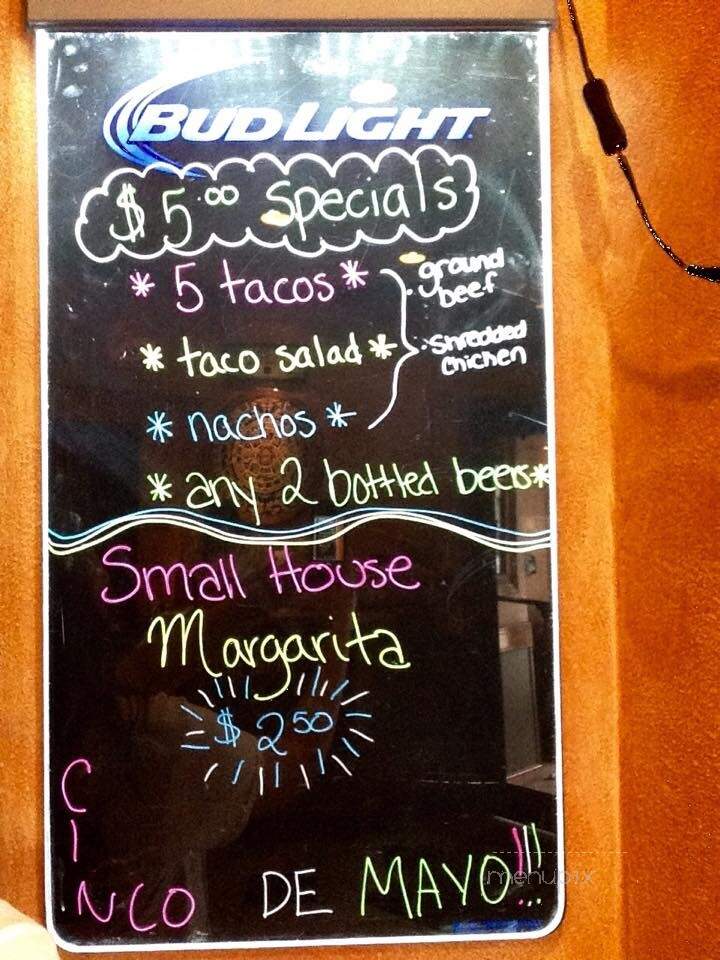 BUD LIGHT
$5.00 Specials
* 5 tacos *
ground beef
* taco salad *
shredded chicken
* nachos *
* any 2 bottled beers *
Small House
Margarita
$2.50
CINCO DE MAYO!!!
menupix